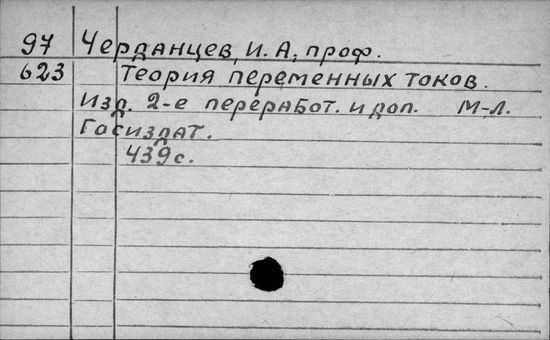 97 Черданцев, И. А., проф.
623 Теория переменных токов.
Изд. 2-е переработ. и доп. М-Л.
Госиздат.
439 с.